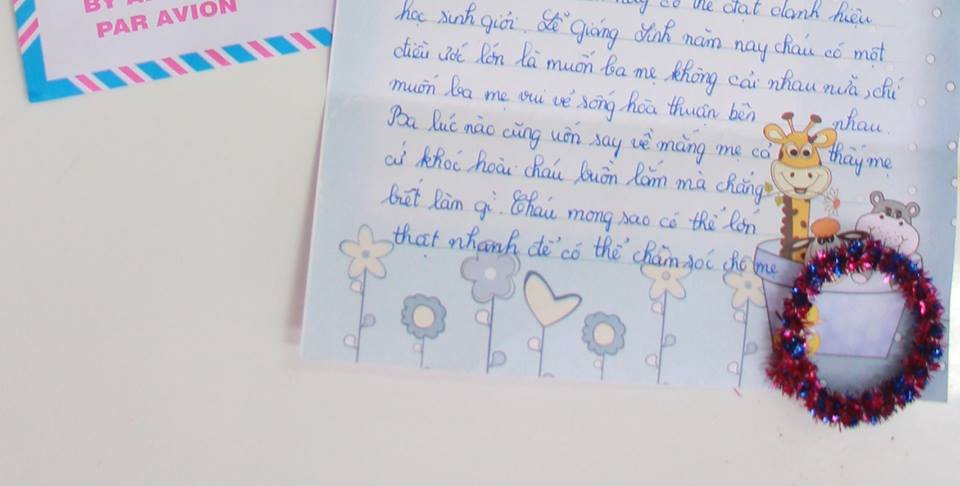 BY A
PAR AVION
có thể đạt danh hiệu
học sinh giỏi. Lễ Giáng Sinh năm nay cháu có một
điều ước lớn là muốn ba mẹ không cãi nhau nữa, chỉ
muốn ba mẹ vui vẻ sống hòa thuận bên nhau.
Ba lúc nào cũng uốn say về mắng mẹ cả thấy mẹ
cứ khóc hoài cháu buồn lắm mà chẳng
biết làm gì. Cháu mong sao có thể lớn
thật nhanh để có thể chăm sóc cho mẹ